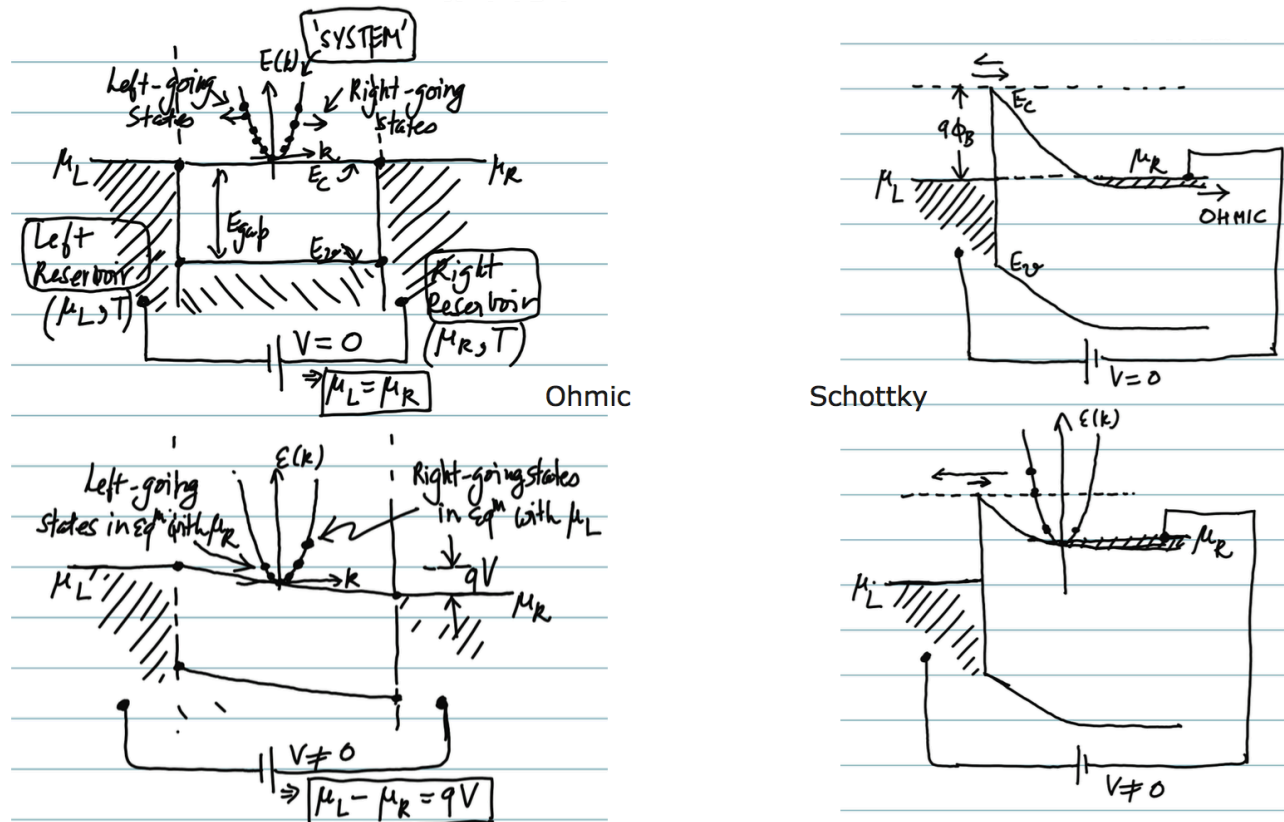 'SYSTEM'
E(k)
Left-going
States
Right-going
states
k
μL
EC
μR
Egap
Ev
Left
Reservoir
(μL, T)
Right
Reservoir
(μR, T)
V = 0
⇒ μL = μR
Ohmic
Ɛ(k)
Left-going
states in Eqm with μR
Right-going states
in Eqm with μL
k
qV
μL
μR
V ≠ 0
⇒ μL - μR = qV
EC
qϕB
μR
μL
OHMIC
Ev
V = 0
Schottky
Ɛ(k)
μR
μL
V ≠ 0